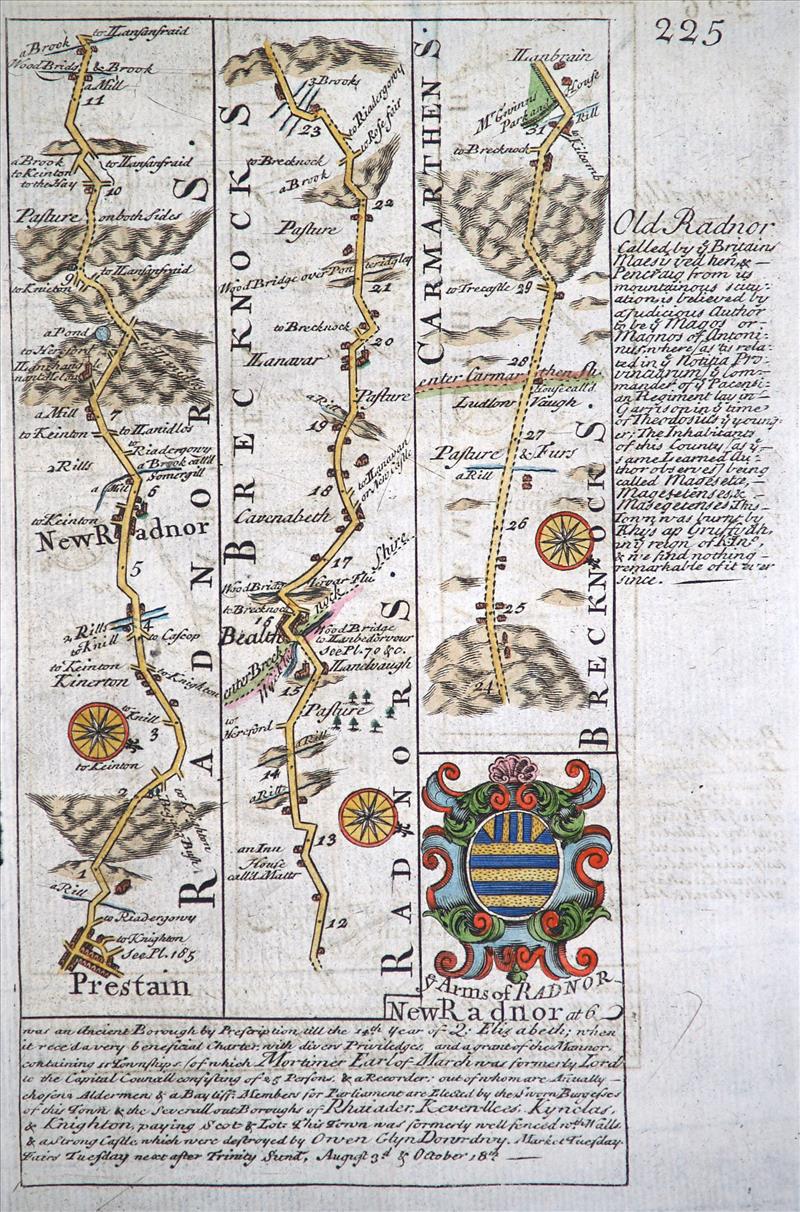 225
to Llansanfraid
a Brook
Wood Bridg & Brook
a Mill
11
a Brook
to Llansanfraid
to Keinton
to the Hay
10
Pasture on both sides
9
to Llansanfraid
to Knieton
a Pond
to Hereford
7
a Mill
to Keinton
to Llanidlos
to Riadergowy
2 Rills
a Brook call'd
Somergill
a Mill
6
to Keinton
New Radnor
5
2 Rills
to Knill
4
to Cascop
to Keinton
Kinerton
to Knighton
to Knill
3
to Keinton
2
1
a Rill
to Riadergowy
to Knighton
See Pl. 185
Prestain
RADNOR S.
3 Brooks
23
to Riadergowy
to Rose fair
to Brecknock
a Brook
22
Pasture
Wood Bridge over Pont eridgley
21
to Brecknock
20
Llanavar
Pasture
a Rill
19
18
to Llanavan
Cavenabeth
17
Wood Bridg
to Brecknock
16
Bealth
Wood Bridge
to Llanbedorvour
See Pl. 70 &c.
enter Brecknock Shire
Llandvaugh
15
Pasture
to Hereford
a Rill
14
a Rill
13
an Inn
House
call'd Maltr
12
BRECKNOCK S
RADNOR S.
CARMARTHEN S.
Llanbrain
House
Mr Gwinns
Park and
Rill
31
to Kilcomb
to Brecknock
to Trecastle
29
28
enter Carmarthen Sh.
House call'd
Ludlow Vaugh
27
Pasture & Furs
a Rill
26
25
24
BRECKNOCK S.
Old Radnor
Called by ye Britains
Maesyved hen &
Pencraig from its
mountainous situ-
ation is believed by
a Judicious Author
to be ye Magos or
Magnos of Antoni-
nus where /as is rela-
ted in ye Notitia Pro-
vinciarum ye Com-
mander of ye Pacensi-
an Regiment lay in
Garrison in ye time
of Theodosius ye young-
er; The Inhabitants
of this County /as ye
same Learned Au-
thor observes/ being
called Magesetæ,
Magesetenses, &
Masegetenses This
Town was burnt by
Rhys ap Gruffydh,
in ye reign of K. Inº.
& we find nothing
remarkable of it ever
since.
ye Arms of RADNOR
New Radnor at 6
was an Ancient Borough by Prescription till the 14th Year of Q: Elizabeth; when
it reced a very beneficial Charter with divers Priviledges, and a grant of the Mannor,
containing 11 Townships /of which Mortimer Earl of March was formerly Lord
to the Capital Councill consisting of 25 Persons, & a Recorder: out of whom are Anually
chosen 2 Aldermen & a Bayliff. Members for Parliament are Elected by the Sworn Burgesses
of this Town & the severall out Boroughs of Rhaiader, Kevenllees, Kynclas,
& Knighton, paying Scot & Lot: This Town was formerly well fenced wth Walls
& a Strong Castle, which were destroyed by Owen Glyn Dowrdwy. Market Tuesday
Fairs Tuesday next after Trinity Sund, August 3d & October 18th